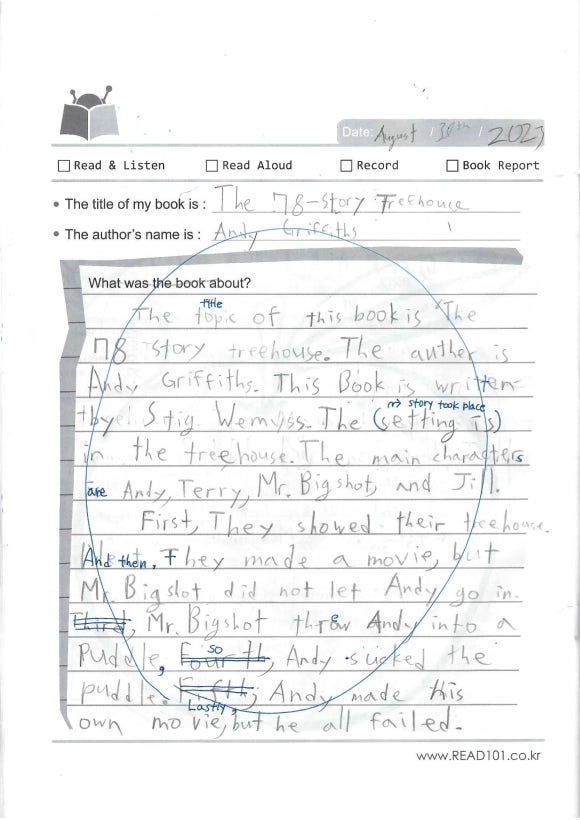 Date: August / 30th / 2023
Read & Listen Read Aloud Record Book Report
The title of my book is : The 78-Story Treehouse
The author's name is : Andy Griffiths
What was the book about?
title
The topic of this book is "The
78 story treehouse. The auther is
Andy Griffiths. This Book is written
by Stig Wemyss. The (setting is)
story took place
in the treehouse. The main characters
are Andy, Terry, Mr. Bigshot, and Jill.
First, They showed their treehouse.
And then, They made a movie, but
Mr. Bigshot did not let Andy go in.
Third, Mr. Bigshot threw Andy into a
so
Puddle, Fourth, Andy sucked the
puddle. Fifth, Andy made this
Lastly,
own movie, but he all failed.
www.READ101.co.kr